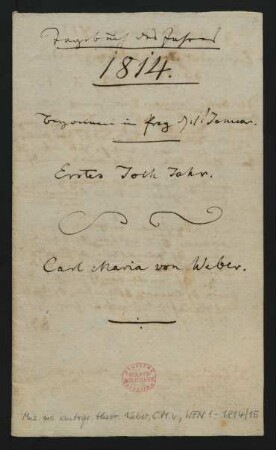 Tagebuch des Jahres
1814.
begonnen in Prag d: 1t Januar.
Erstes Joch Jahr.
Carl Maria von Weber.
Mus. ms. autogr. theor. Weber, C.M.v., WFN 1 - 1814/15